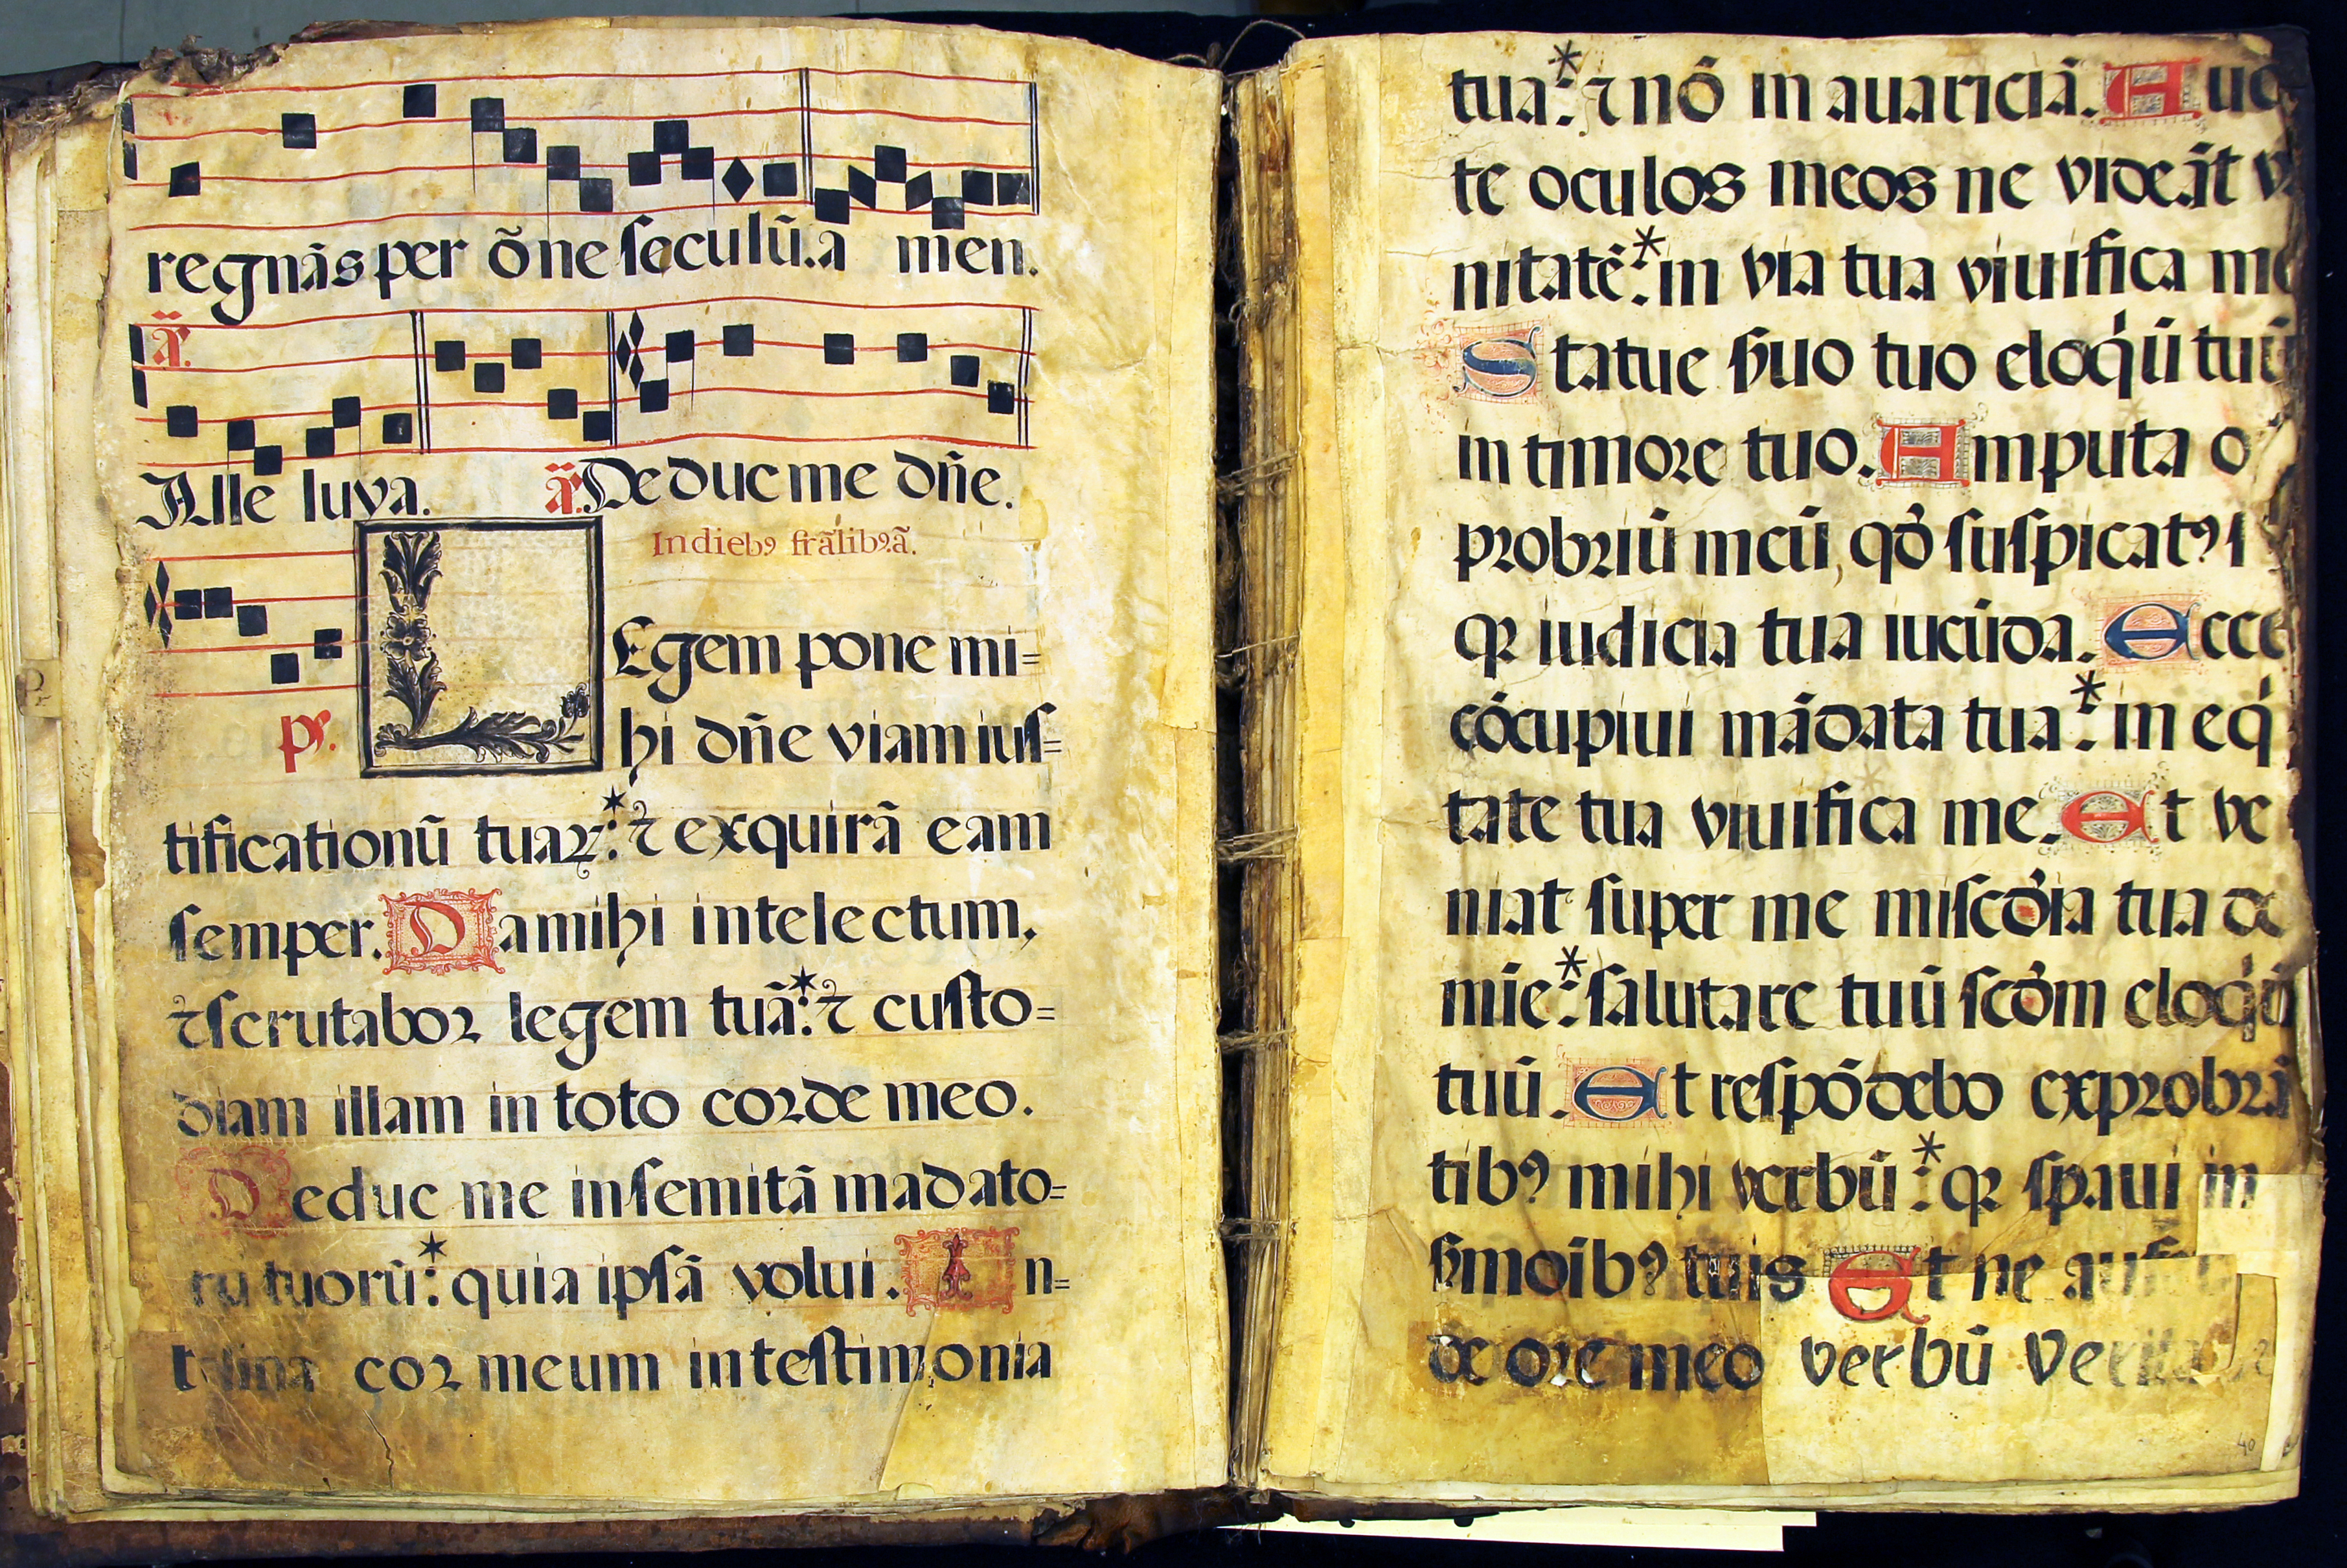 regnãs per õne ſeculũ. a men.
ã.
Alle luya. ã. De duc me dñe.
In diebꝰ frãlibꝰ ã.
LEgem pone mi=
ps. hi dñe viam iuſ=
tificationũ tuaꝝ:* ⁊ exquirã eam
ſemper. Da mihi intelectum,
⁊ ſcrutabor legem tuã:* ⁊ cuſto=
diam illam in toto corde meo.
Deduc me in ſemitã madato=
ru tuorũ:* quia ipſã volui. In=
cor meum in teſtimonia
tua:* ⁊ nõ in auariciã. A
te oculos meos ne videãt
nitatẽ:* in via tua viuifica me
Statue ẜuo tuo eloq̇ũ tuũ
in timore tuo. Amputa o
probriũ meũ, qð ſuſpicatꝰ ſ
qꝛ iudicia tua iucũda. Ecce
cõcupiui mãdata tua:* in eq̇
tate tua viuifica me. Et ve
niat ſuper me miſcðia tua dñe
mie:* ſalutare tuũ ſcðm eloq̇ũ
tuũ. Et reſpõdebo exprobrã
tibꝰ mihi verbũ:* qꝛ ſpaui in
ẜmoibꝰ tuis Et ne
de ore meo verbũ
40